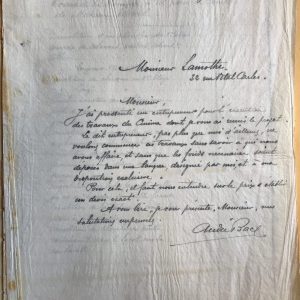 Monsieur Lamothe
32 rue Vital Carles.
Monsieur,
J'ai pressenti un entrepreneur pour l'exécution
des travaux du Cinéma dont je vous ai remis le projet.
Le dit entrepreneur, pas plus que moi d'ailleurs, ne
voulons commencer les travaux sans savoir à qui nous
avons affaire et sans que les fonds nécessaires soient
déposés dans une banque désignée par moi et à ma
disposition exclusive.
Pour cela, il faut nous entendre sur le prix et établir
un devis exact.
A vous lire, je vous présente, Monsieur, mes
salutations empressées.